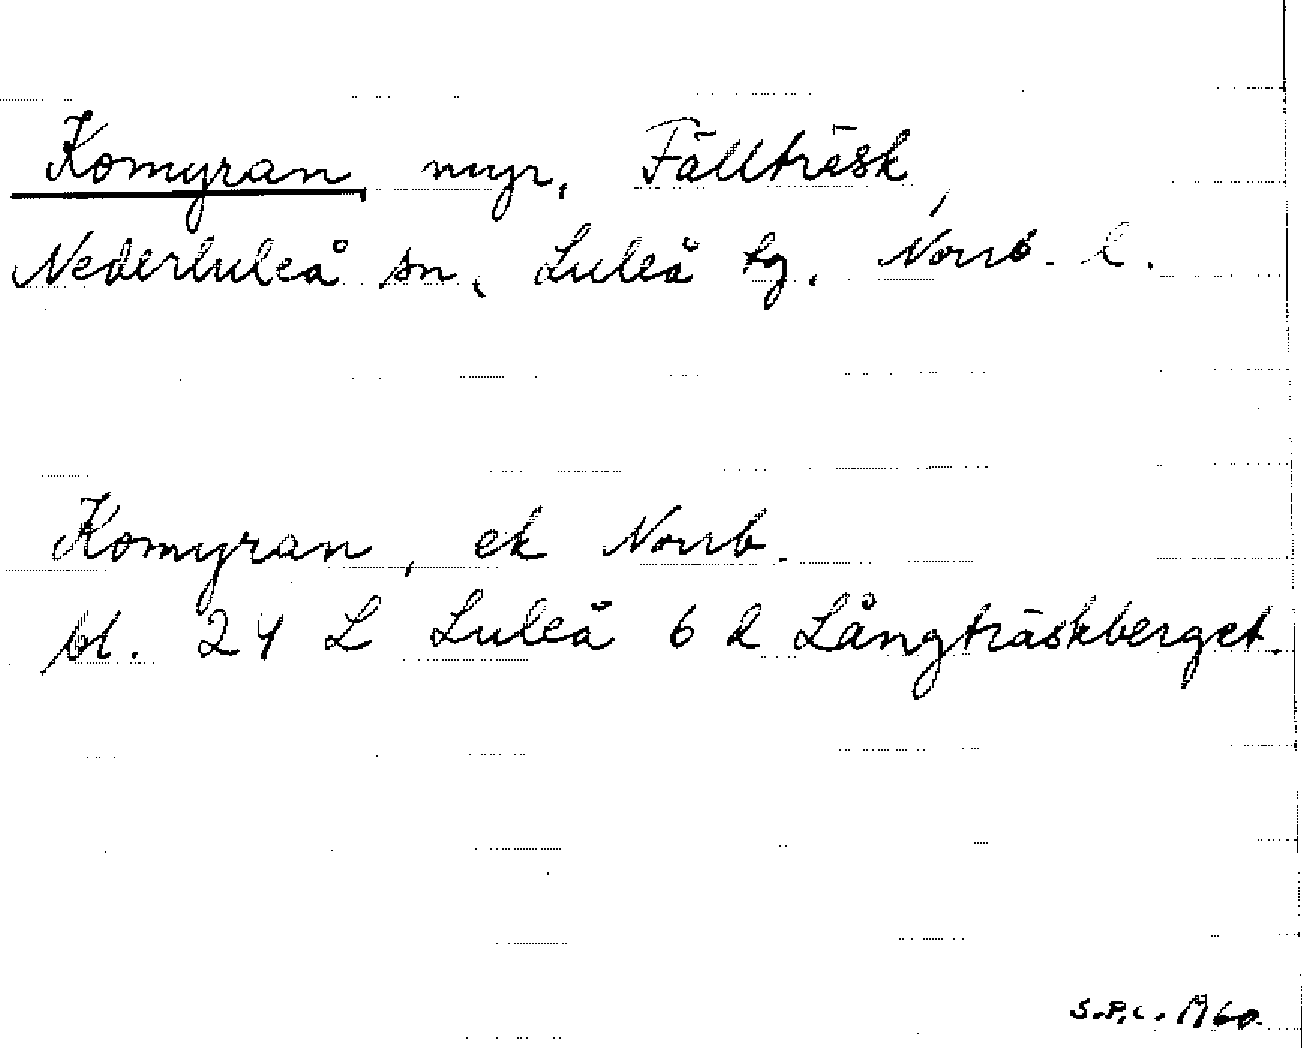 Komyran, myr, Fällträsk,
Nederluleå sn, Luleå tg. Norrb. l.
Komyran, ek Norrb.
bl. 24 L Luleå 6 d Långträskberget.
S.P.C. 1960.